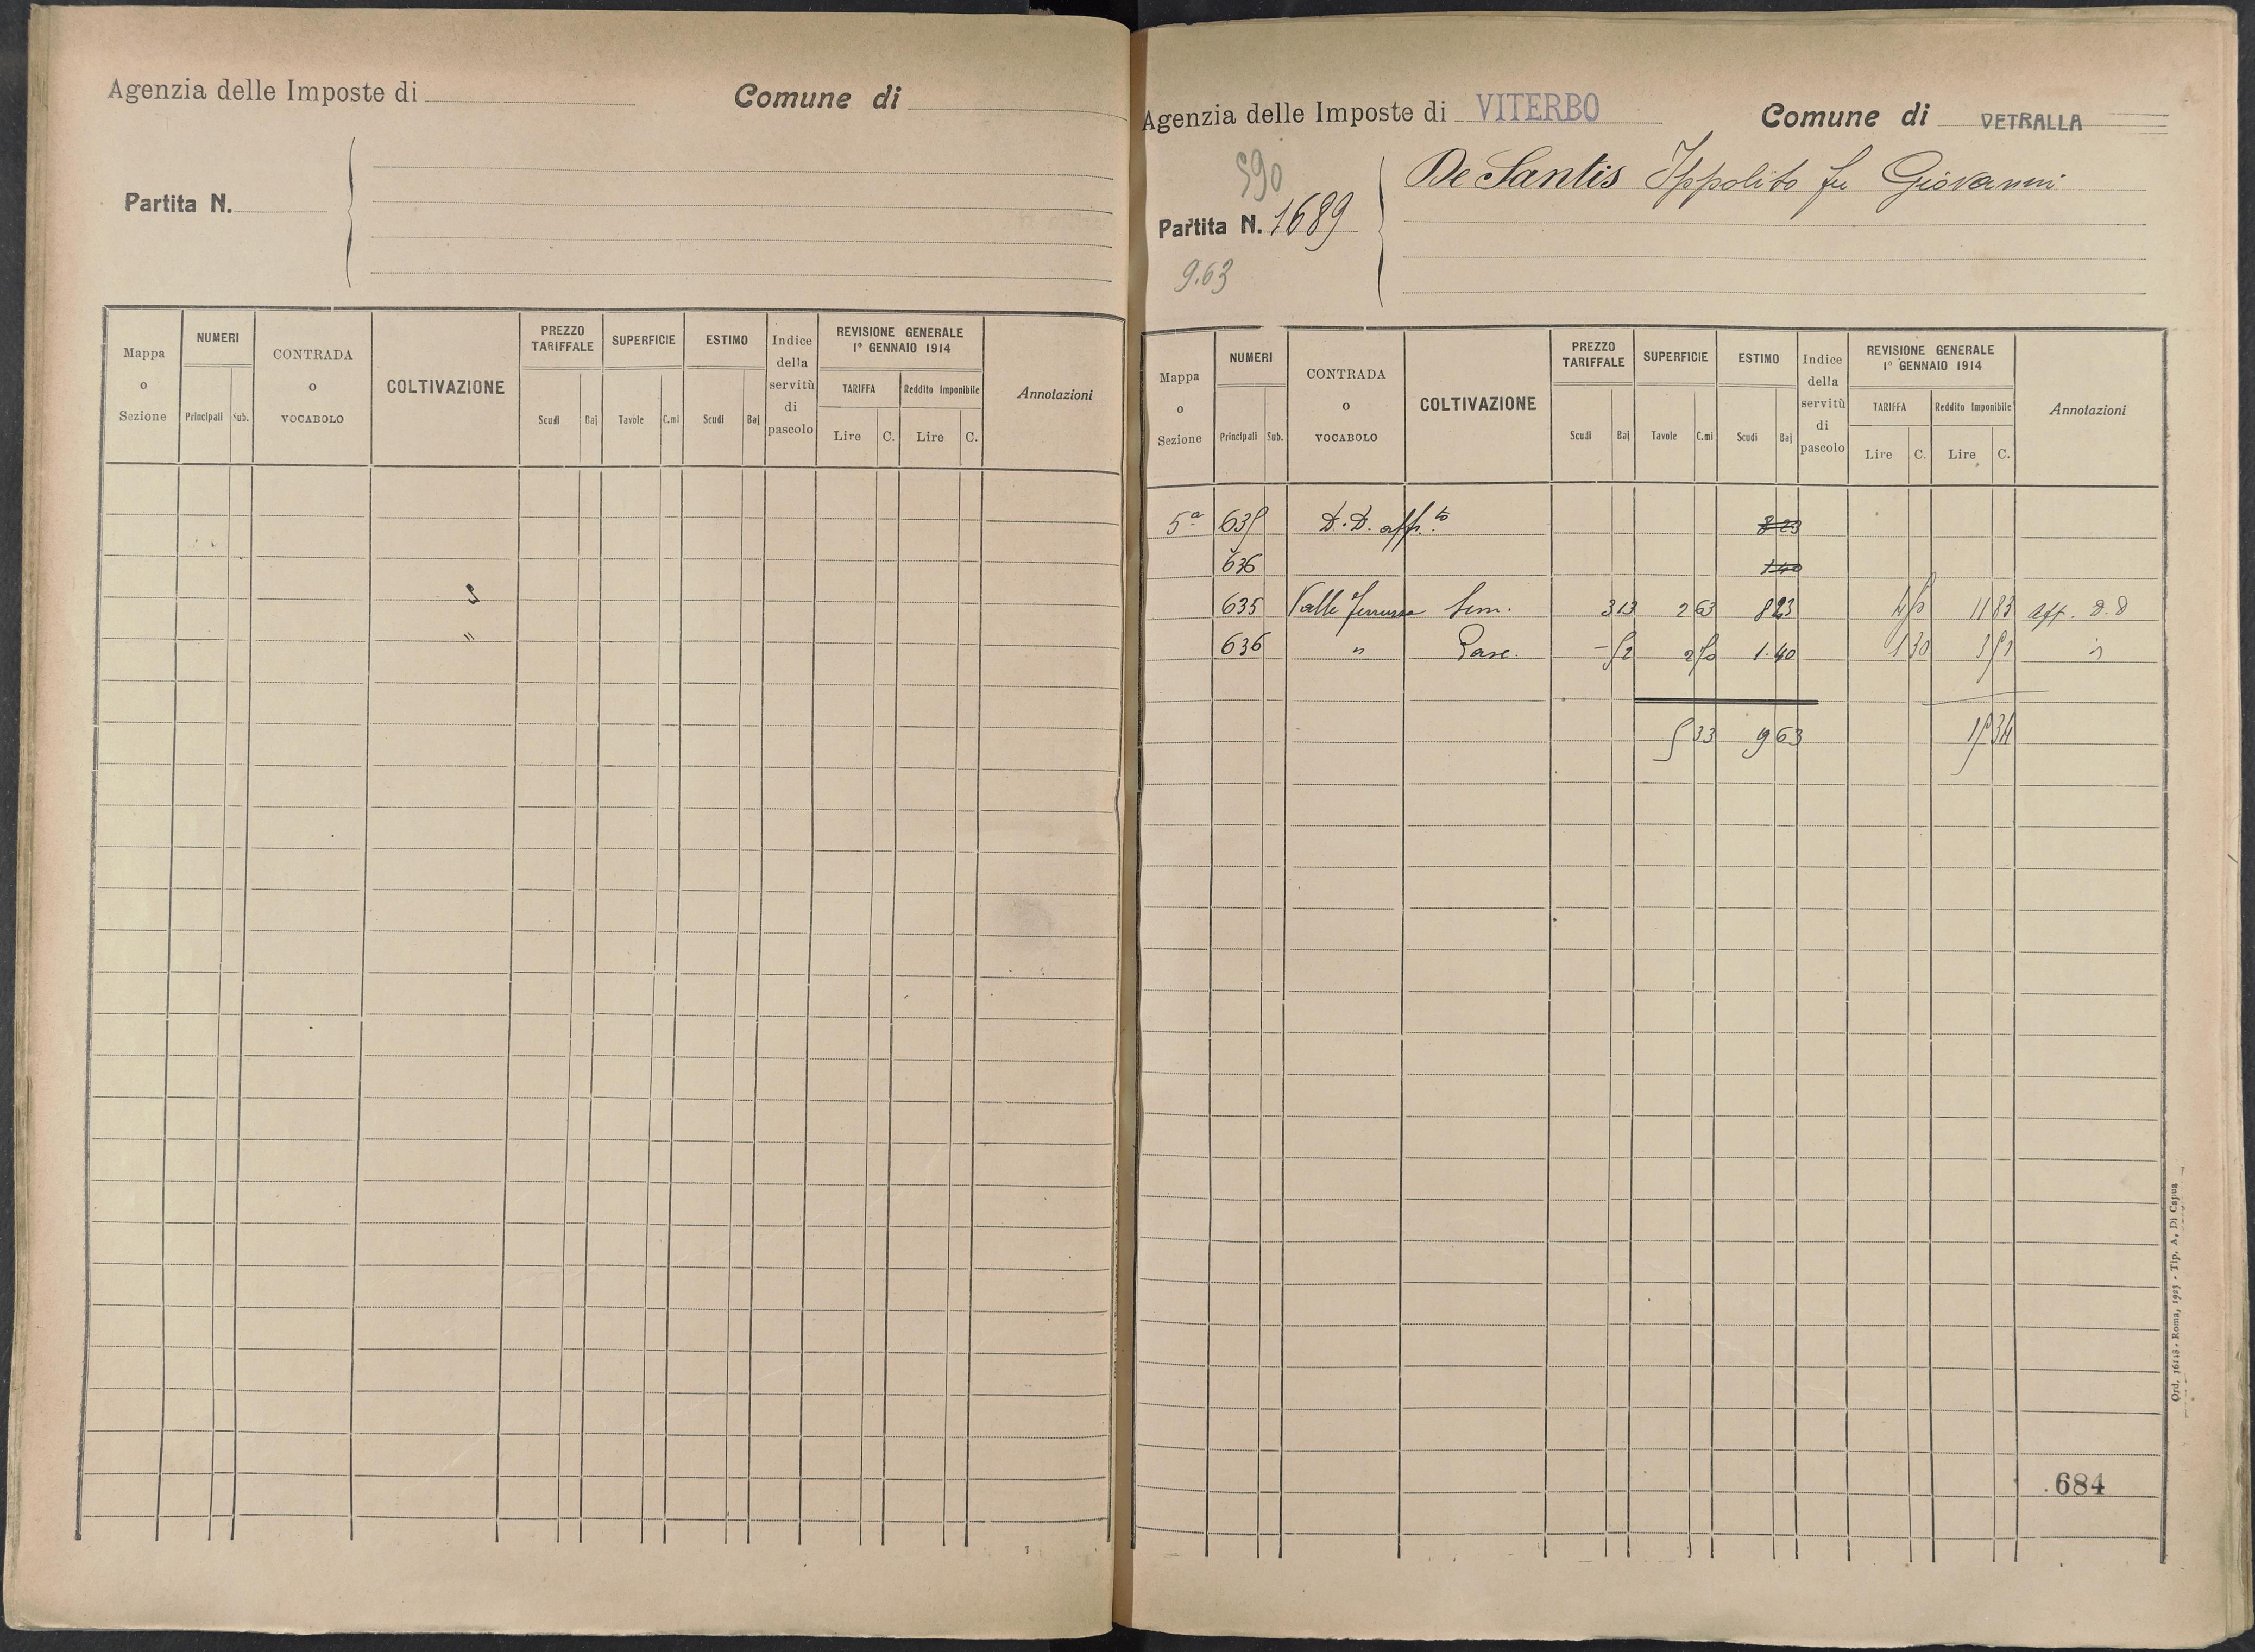 Agenzia delle Imposte di
Comune di
Partita N.
Mappa o Sezione
NUMERI
Principali Sub.
CONTRADA o VOCABOLO
COLTIVAZIONE
PREZZO TARIFFALE
Scudi Baj
SUPERFICIE
Tavole C.mi
ESTIMO
Scudi Baj
Indice della servitù di pascolo
REVISIONE GENERALE
1° GENNAIO 1914
TARIFFA Reddito Imponibile
Lire C. Lire C.
Annotazioni
Agenzia delle Imposte di VITERBO
Comune di VETRALLA
590
Partita N. 1689
9.63
De Santis Ippolito fu Giovanni
Mappa o Sezione
NUMERI
Principali Sub.
CONTRADA o VOCABOLO
COLTIVAZIONE
PREZZO TARIFFALE
Scudi Baj
SUPERFICIE
Tavole C.mi
ESTIMO
Scudi Baj
Indice della servitù di pascolo
REVISIONE GENERALE
1° GENNAIO 1914
TARIFFA Reddito Imponibile
Lire C. Lire C.
Annotazioni
5a 635 D.D. aff.to 8 23
636 1 40
635 Valle Sem. 3 13 2 63 8 23 4 50 11 83 aff. D.D
636 " Pasc. - 52 2 70 1.40 1 30 3 51
5 33 9 63 15 34
684
Ord. 16118 - Roma, 1923 - Tip. A. Di Capua